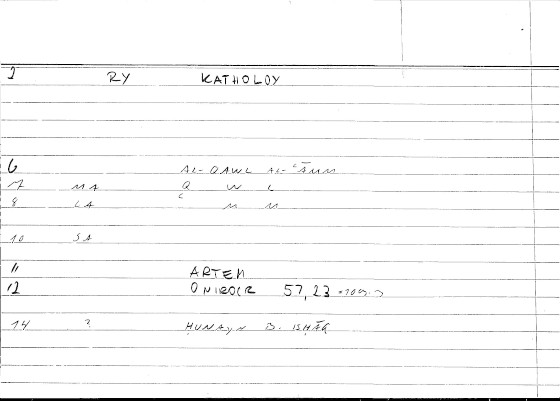 2 RY KATHOLOY
6 AL-QAWL AL-ʿĀMM
7 MA Q W L
8 LA ʿ M M
10 SA
11 ARTEM
12 ONIROCR 57,23
14 ? ḤUNAYN B. ISḤĀQ